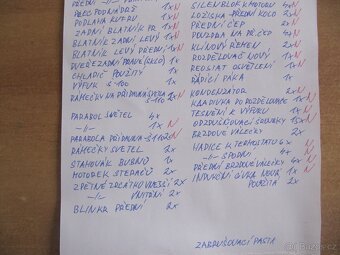 PŘEDNÍ
PŘED PODNAPŘEDÍ 1x N
PODLAHA KUFRU 1x N
ZADNÍ BLATNÍK PR. 1x N
BLATNÍK ZADNÍ LEVÝ 1x N
BLATNÍK LEVÝ PŘEDNÍ 1x N
DVEŘE ZADNÍ PRAVÉ (SKLO) 1x
CHLADIČ POUŽITÝ 1x
VÝFUK Š 100 1x
RÁMEČKY NA PŘÍDAVNÁ 2x N
Š-110
PARABOL SVĚTEL 4x
-//- 1x N
PARABOLA PŘÍDAVNÁ Š-110 N
RÁMEČKY SVĚTEL 2x
STAHOVÁK BUBNŮ 1x
MOTOREK STĚRAČŮ 2x
ZPĚTNÉ ZRCÁTKO VNĚJŠÍ 2x
-//- VNITŘNÍ 2x
BLINKR PŘEDNÍ 2x
SILENBLOK K MOTORU 2x N
LOŽISKA PŘEDNÍ KOLO 2x N
PŘEDNÍ ČEP 2x N
POUZDRA NA PŘ ČEP 4x N
KLÍNOVÝ ŘEMEN 2x N
ROZDĚLOVAČ NOVÝ 1x N
REOSTAT OSVĚTLENÍ 1x N
ŘADÍCÍ PÁKA 1x
KONDENZÁTOR 2x N
KLADÍVKA DO ROZDĚLOVAČE 1x N
TĚSNĚNÍ K VÝFUKU 1x N
ODVZDUŠŇOVACÍ ŠROUBKY 15x N
BRZDOVÉ VÁLEČKY 2x
HADICE K TERMOSTATU 6x N
-//- SPODNÍ 4x N
PŘEDNÍ BRZDOVÉ VÁLEČKY 4x N
INDUKČNÍ CÍVKA NOVÁ 1x N
POUŽITÁ 2x
ZABRUŠOVACÍ PASTA
bazos.cz